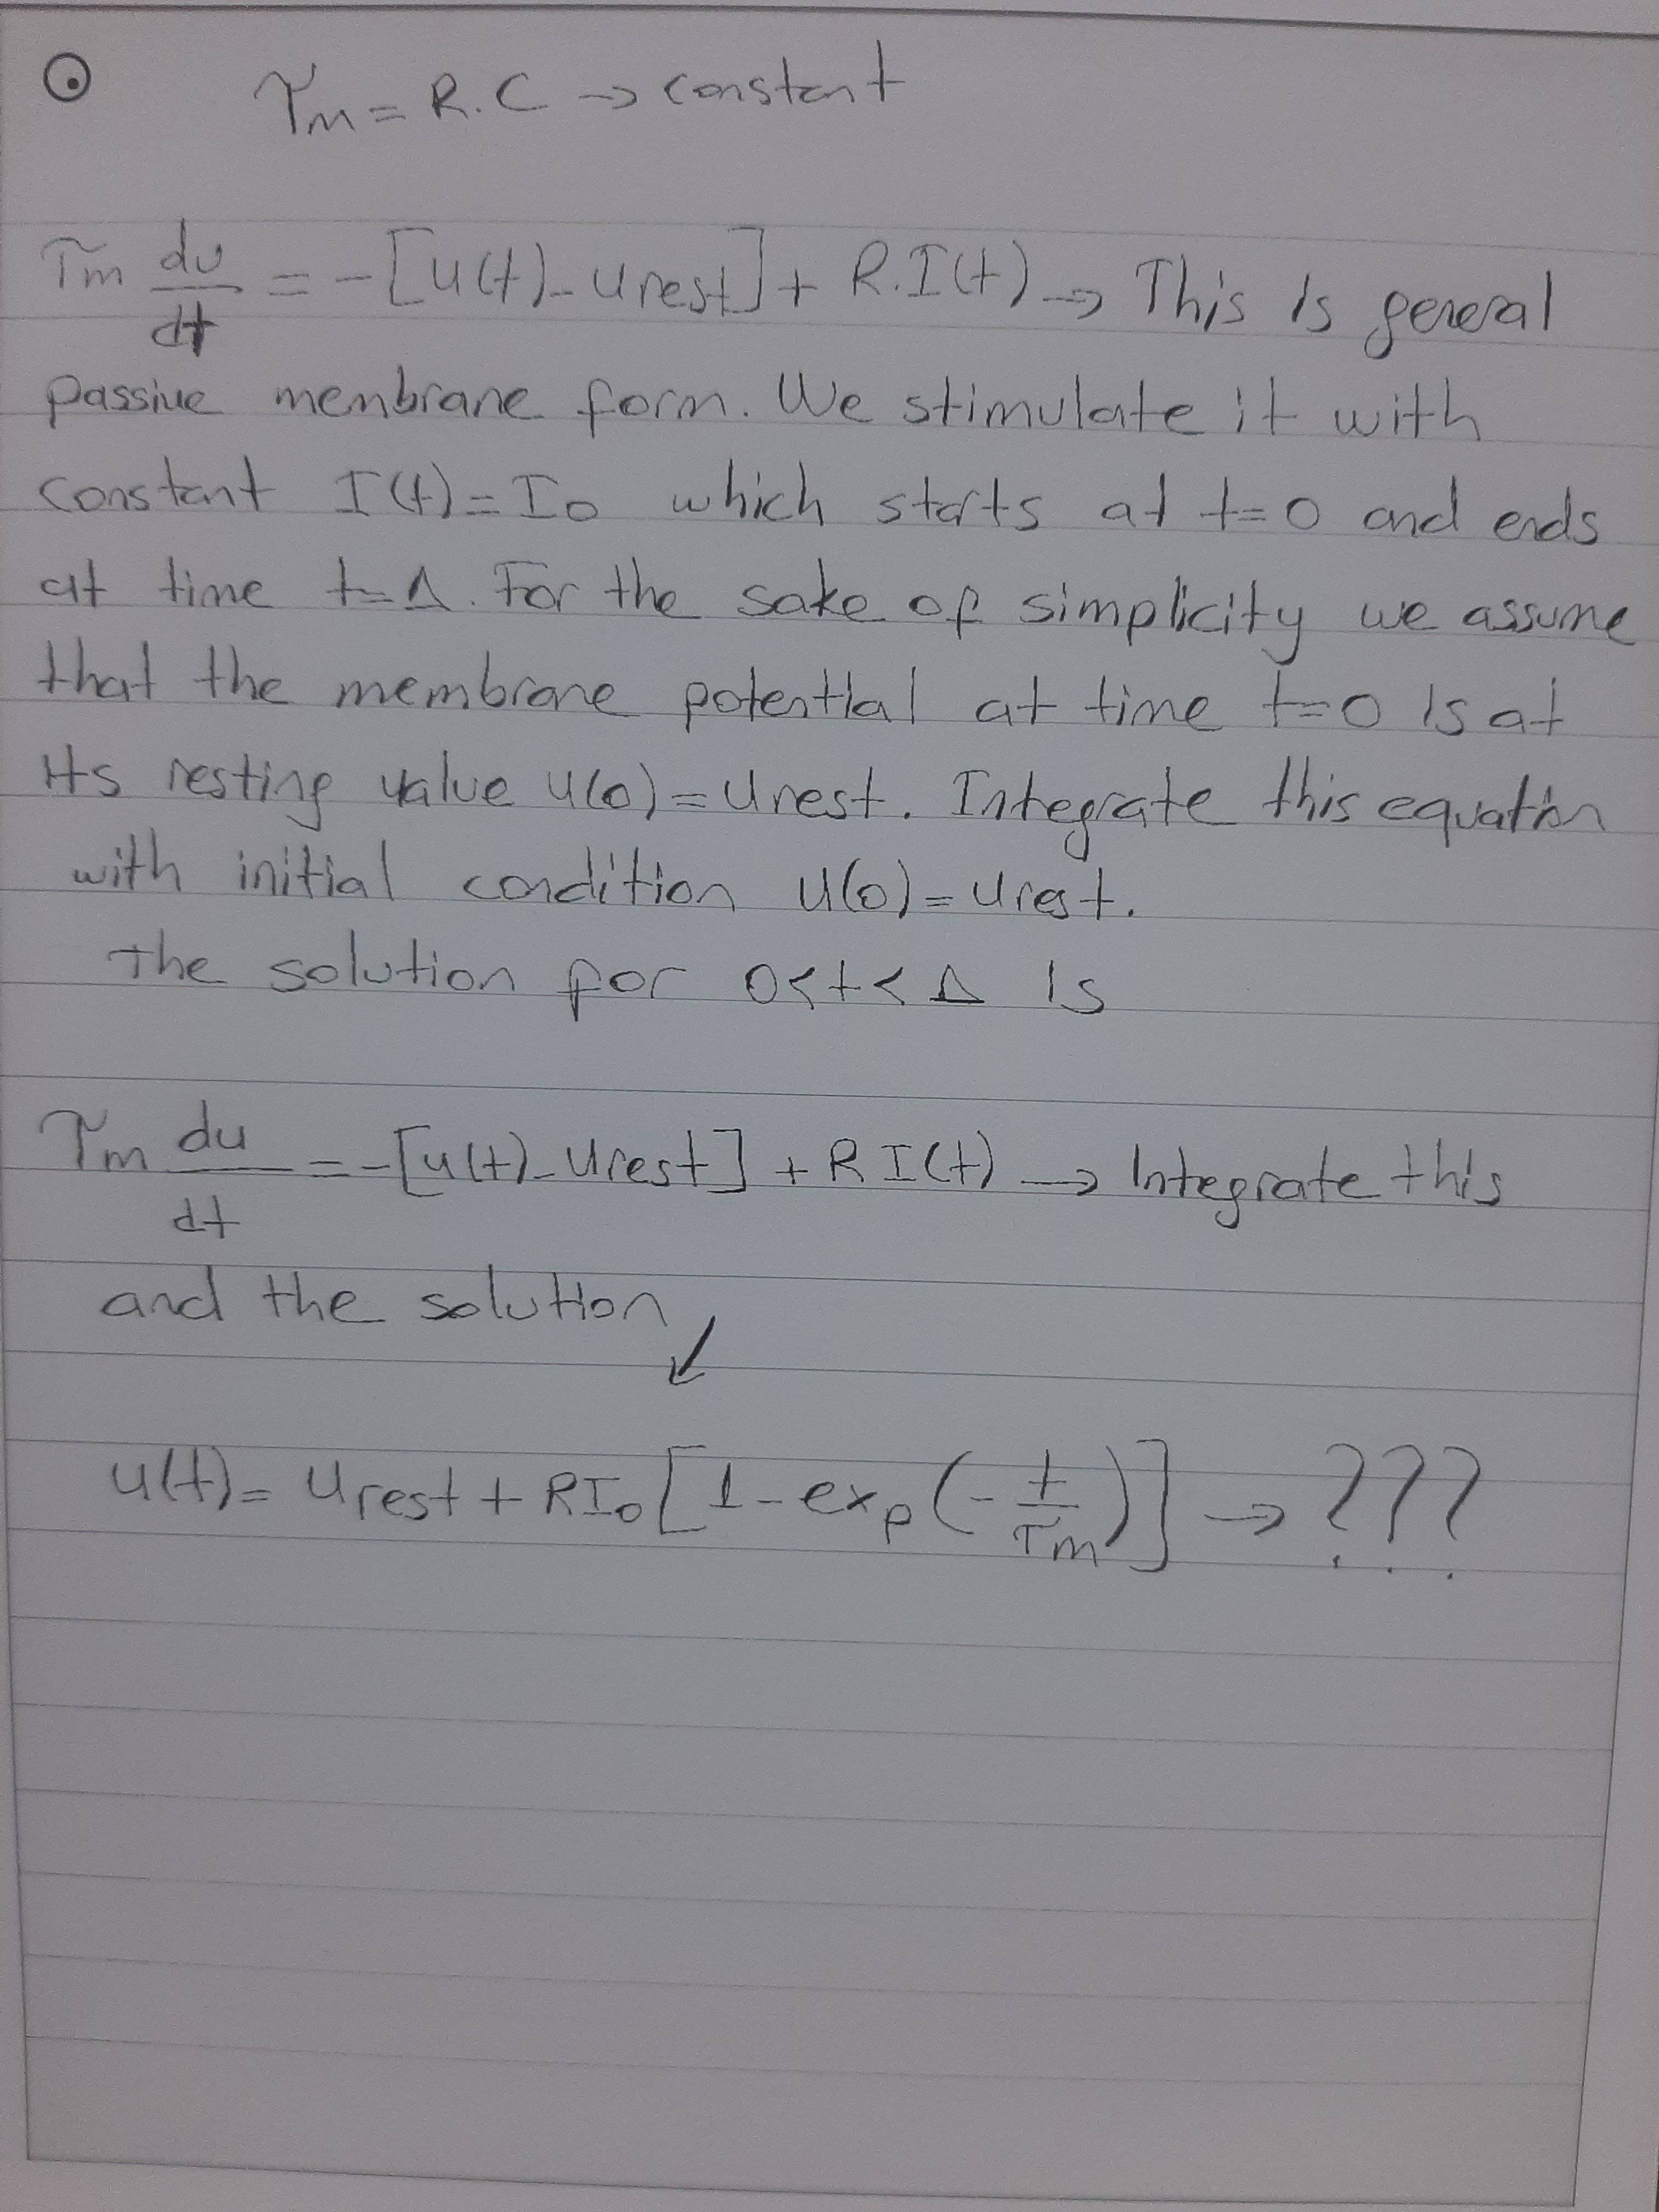 τm = R.C → constant
τm du/dt = -[u(t)-urest] + R.I(t) → This is general
passive membrane form. We stimulate it with
constant I(t)=I0 which starts at t=0 and ends
at time t=Δ. For the sake of simplicity we assume
that the membrane potential at time t=0 is at
its resting value u(0)=urest. Integrate this equation
with initial condition u(0)=urest.
The solution for 0<t<Δ is
τm du/dt = -[u(t)-urest] + R I(t) → Integrate this
and the solution ↙
u(t)= urest + RI0 [1-exp(-t/τm)] → ???